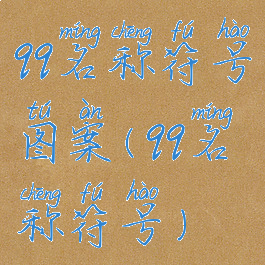 míng chēng fú hào
99名称符号
tú àn míng
图案(99名
chēng fú hào
称符号)